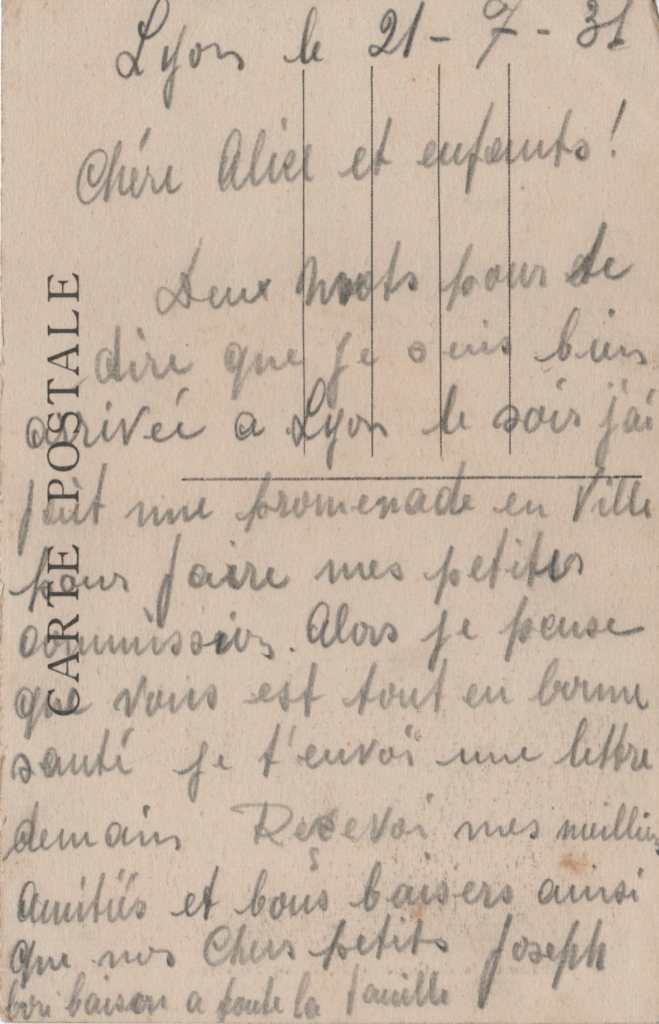 Lyon le 21-7-31
Chére Alice et enfants!
Deux mots pour te
dire que je suis bien
arrivée a Lyon le soir j'ai
fait une promenade en Ville
pour faire mes petites
commission. Alors je pense
que vous est tout en bonne
santé je t'envoï une lettre
demain Reçevoi mes meillieu
amitiés et bons baisers ainsi
que nos Chers petits Joseph
bon baison a toute la famille
CARTE POSTALE